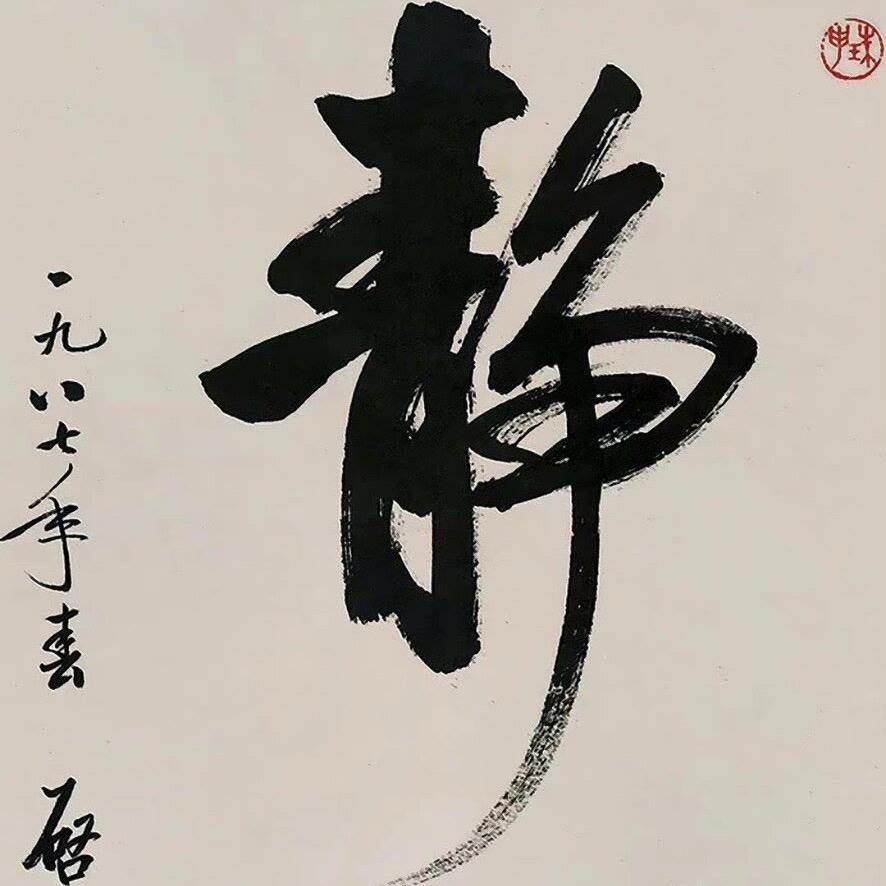 静
一九八七年春
启